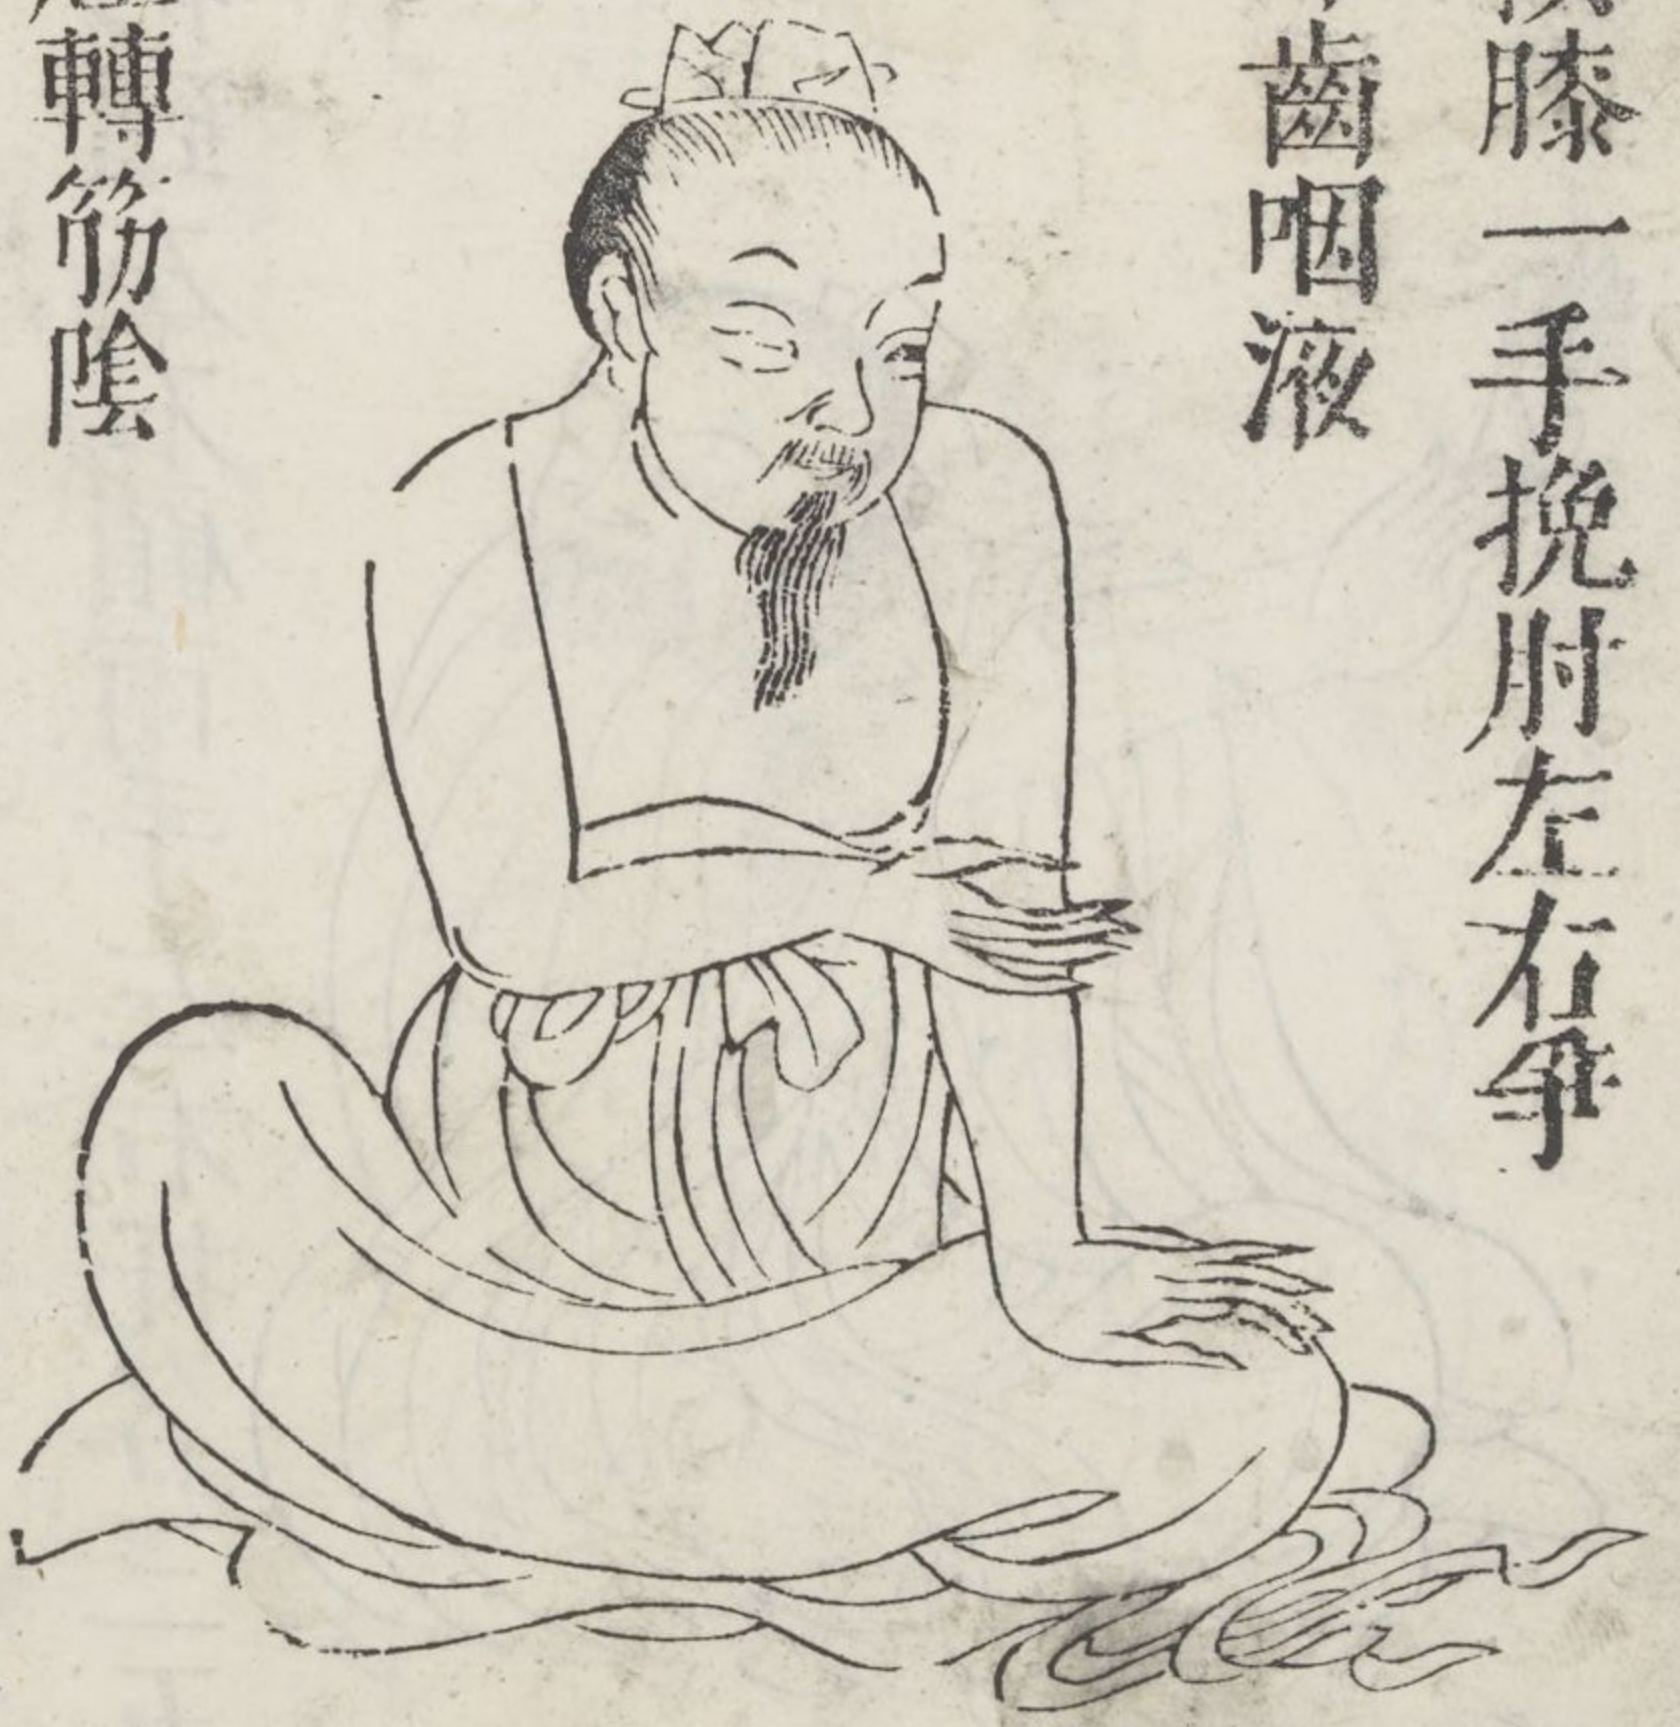 膝一手挽肘左右爭
齒咽液
轉筋陰